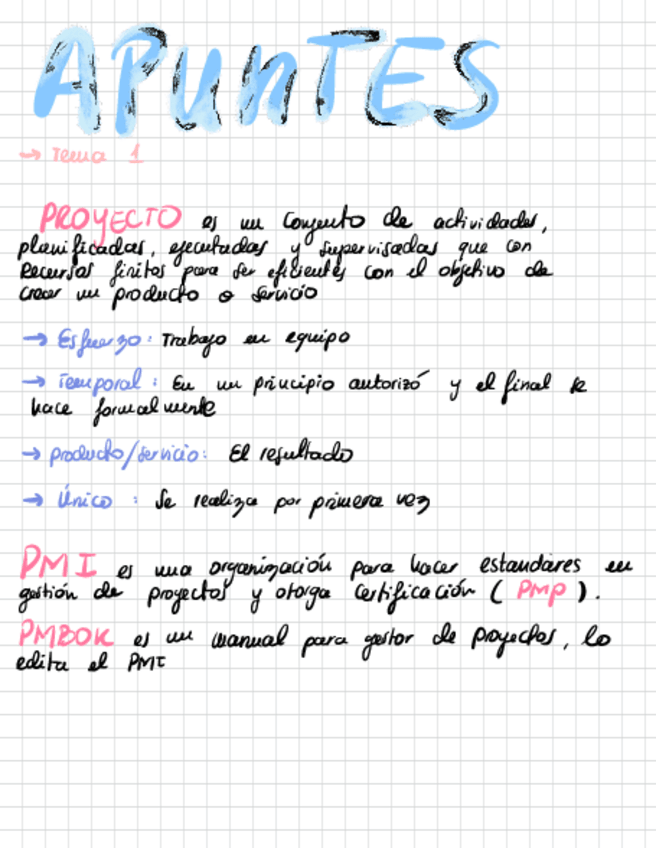 APUNTES
→ Tema 1
PROYECTO es un conjunto de actividades,
planificadas, ejecutadas y supervisadas que con
Recursos finitos para ser eficientes con el objetivo de
crear un producto o servicio
→ Esfuerzo: Trabajo en equipo
→ Temporal: En un principio autorizó y el final se
hace formalmente
→ producto/servicio: El resultado
→ Único: Se realiza por primera vez
PMI es una organización para hacer estandares en
gestión de proyectos y otorga certificación (PMP).
PMBOK es un manual para gestor de proyectos, lo
edita el PMI